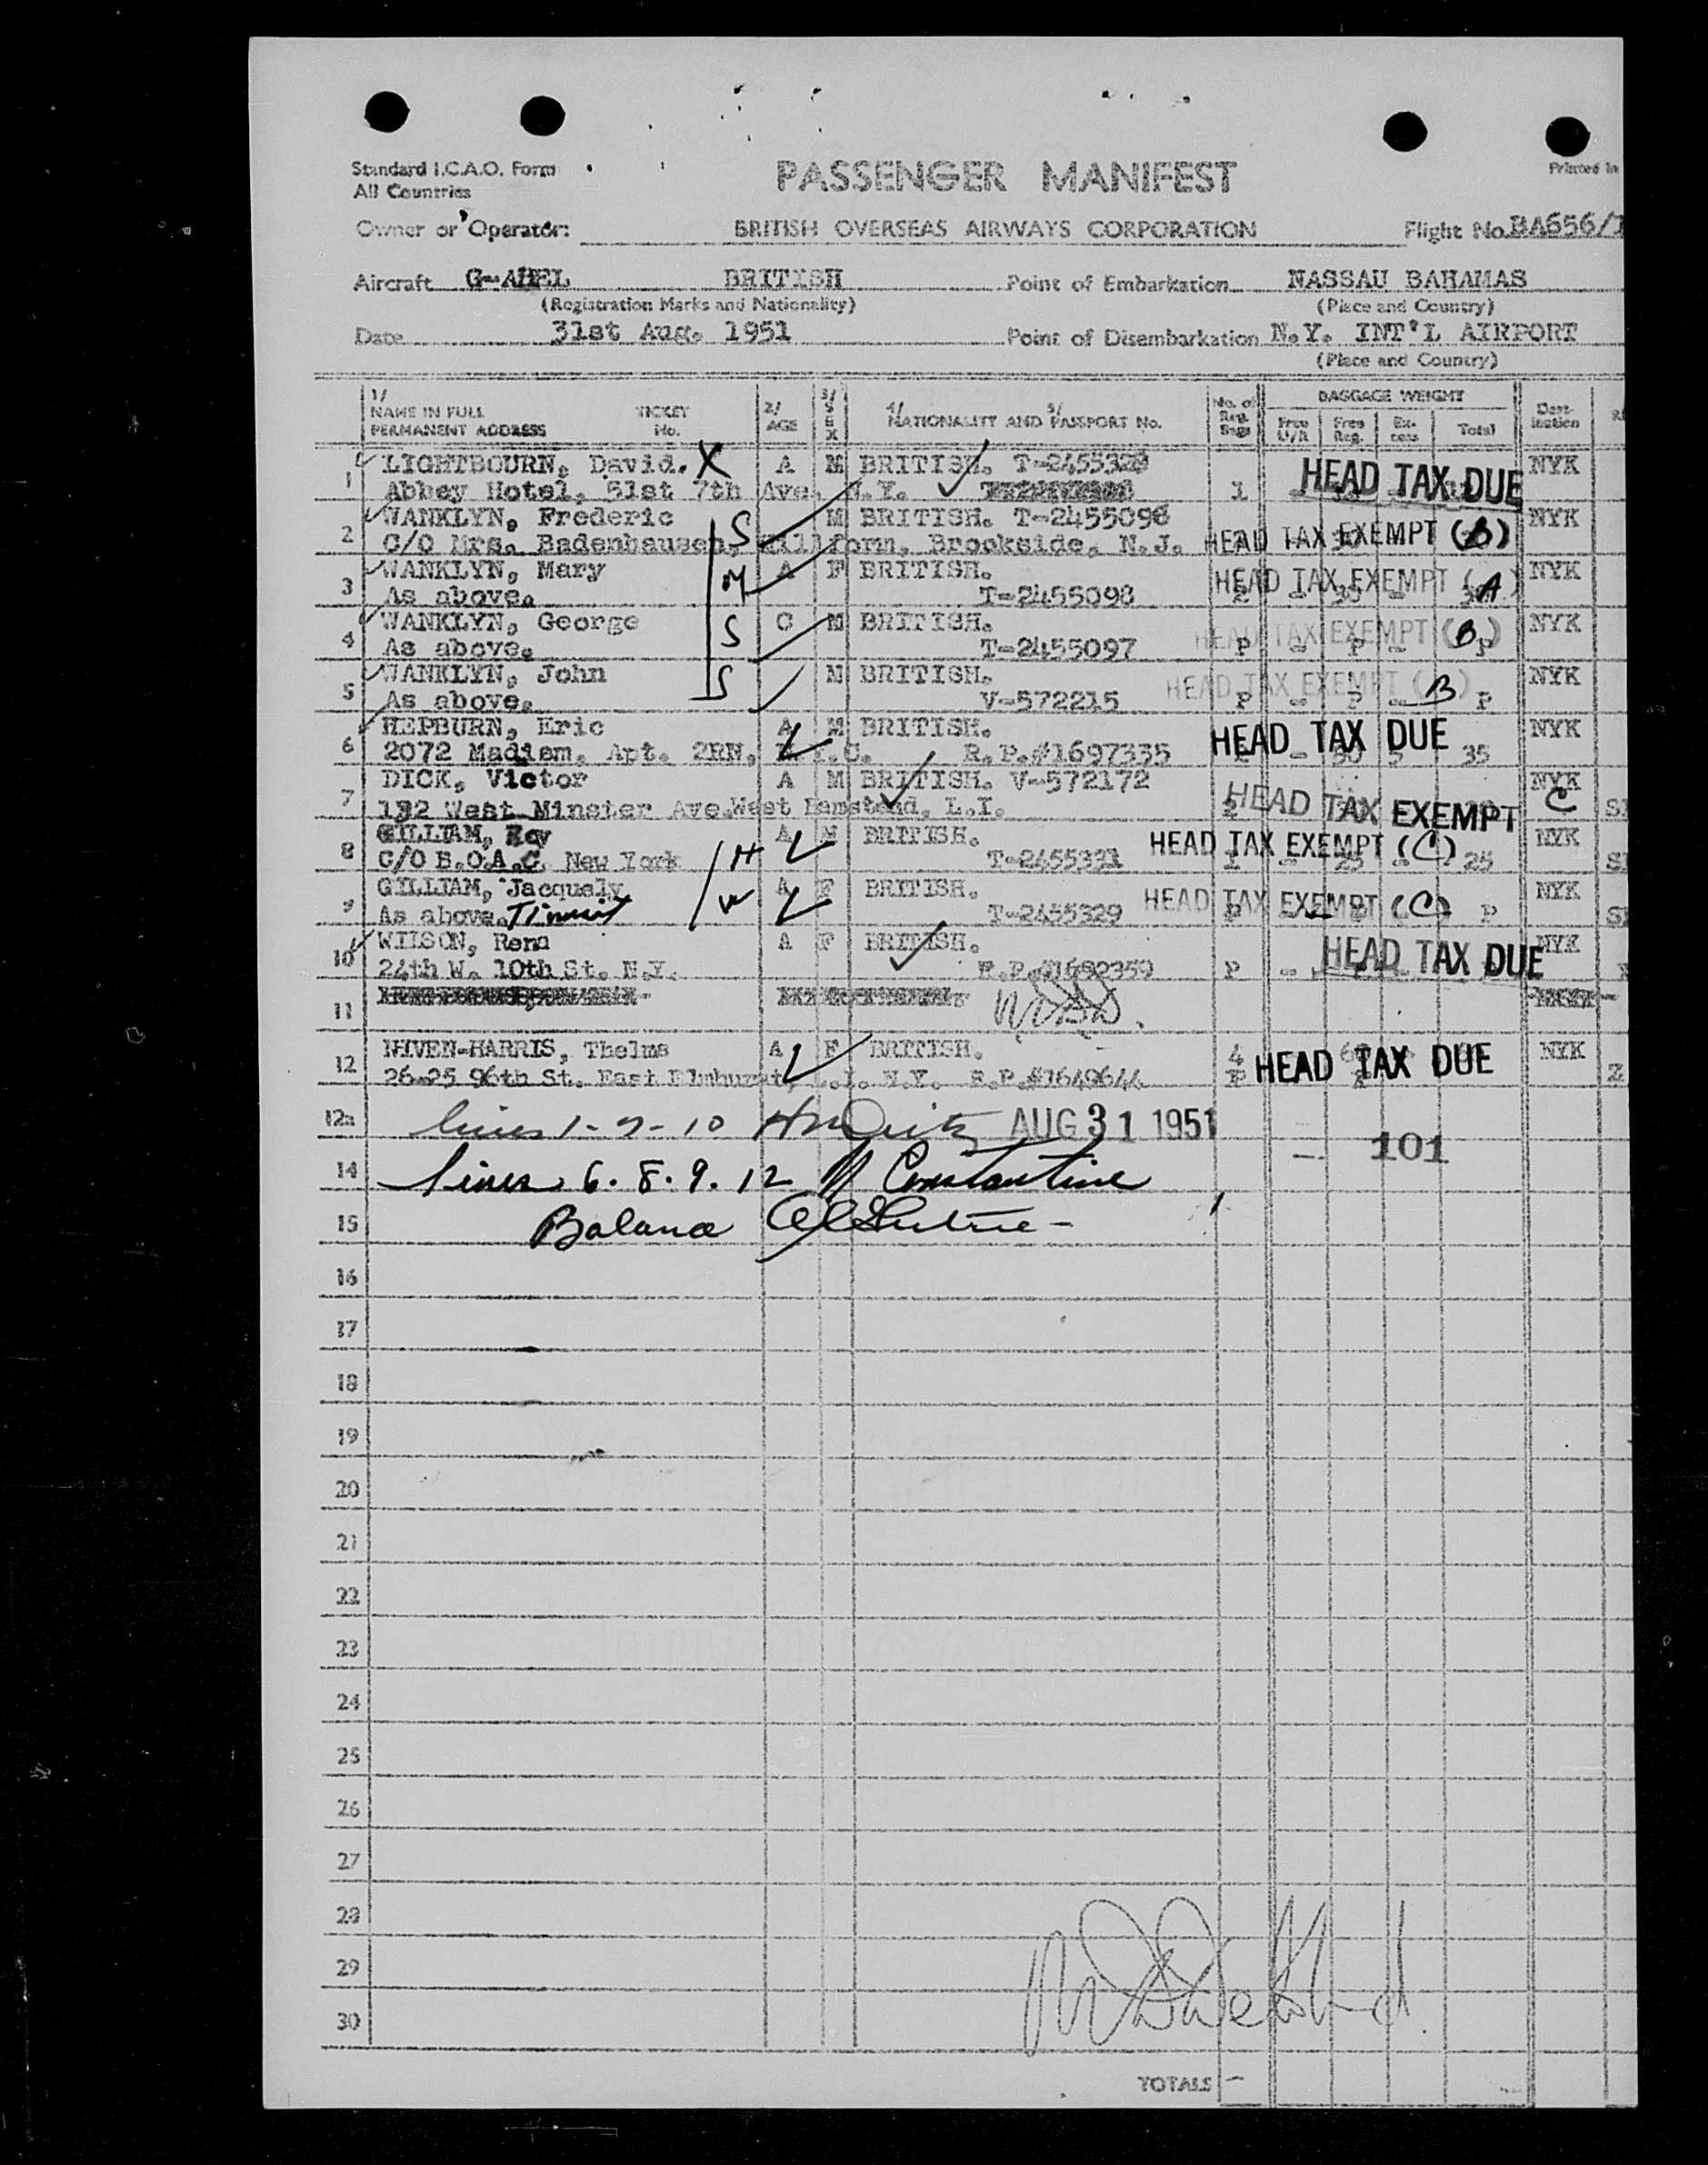 Standard I.C.A.O. Form
All Countries
PASSENGER MANIFEST
Printed in
Owner or Operator: BRITISH OVERSEAS AIRWAYS CORPORATION Flight No. BA656/
Aircraft G-AHEL BRITISH Point of Embarkation NASSAU BAHAMAS
(Registration Marks and Nationality) (Place and Country)
Date 31st Aug. 1951 Point of Disembarkation N.Y. INT'L AIRPORT
(Place and Country)
1/ NAME IN FULL PERMANENT ADDRESS TICKET No. 2/ AGE 3/ SEX 4/ NATIONALITY AND 5/ PASSPORT No. No. of Reg. Bags BAGGAGE WEIGHT Free U/R Free Reg. Ex-cess Total Dest-ination
1 LIGHTBOURN, David. X A M BRITISH. T-2455328 HEAD TAX DUE NYK
Abbey Hotel, 51st 7th Ave. N.Y. 1
2 WANKLYN, Frederic S M BRITISH. T-2455096 HEAD TAX EXEMPT (B) NYK
C/O Mrs. Badenhausen, Brookside, N.J.
3 WANKLYN, Mary M A F BRITISH. HEAD TAX EXEMPT (A) NYK
As above. T-2455098
4 WANKLYN, George S C M BRITISH. HEAD TAX EXEMPT (B) NYK
As above. T-2455097 P - P - P
5 WANKLYN, John S M BRITISH. HEAD TAX EXEMPT (B) NYK
As above. V-572215 P - P - P
6 HEPBURN, Eric A M BRITISH. HEAD TAX DUE NYK
2072 Madism, Apt. 2RN, N.Y.C. R.P.#1697335 - 30 5 35
7 DICK, Victor A M BRITISH. V-572172 HEAD TAX EXEMPT C NYK
132 West Minster Ave. West Hamstead, L.I.
8 GILLIAM, Roy H A M BRITISH. HEAD TAX EXEMPT (C) NYK
C/O B.O.A.C. New York T-2455331 1 - 25 - 25
9 GILLIAM, Jacquely W A F BRITISH. HEAD TAX EXEMPT (C) NYK
As above. T-2455329 P
10 WILSON, Rena A F BRITISH. HEAD TAX DUE NYK
24th W. 10th St. N.Y. R.P.#1692359 P
11
12 NIVEN-HARRIS, Thelma A F BRITISH. 4 HEAD TAX DUE NYK
26-25 96th St. East Elmhurst, L.I. N.Y. R.P.#1649644
12a lines 1-7-10 AUG 31 1951
101
14 lines 6. 8. 9. 12 Constantine
15 Balance
16
17
18
19
20
21
22
23
24
25
26
27
28
29
30
TOTALS -